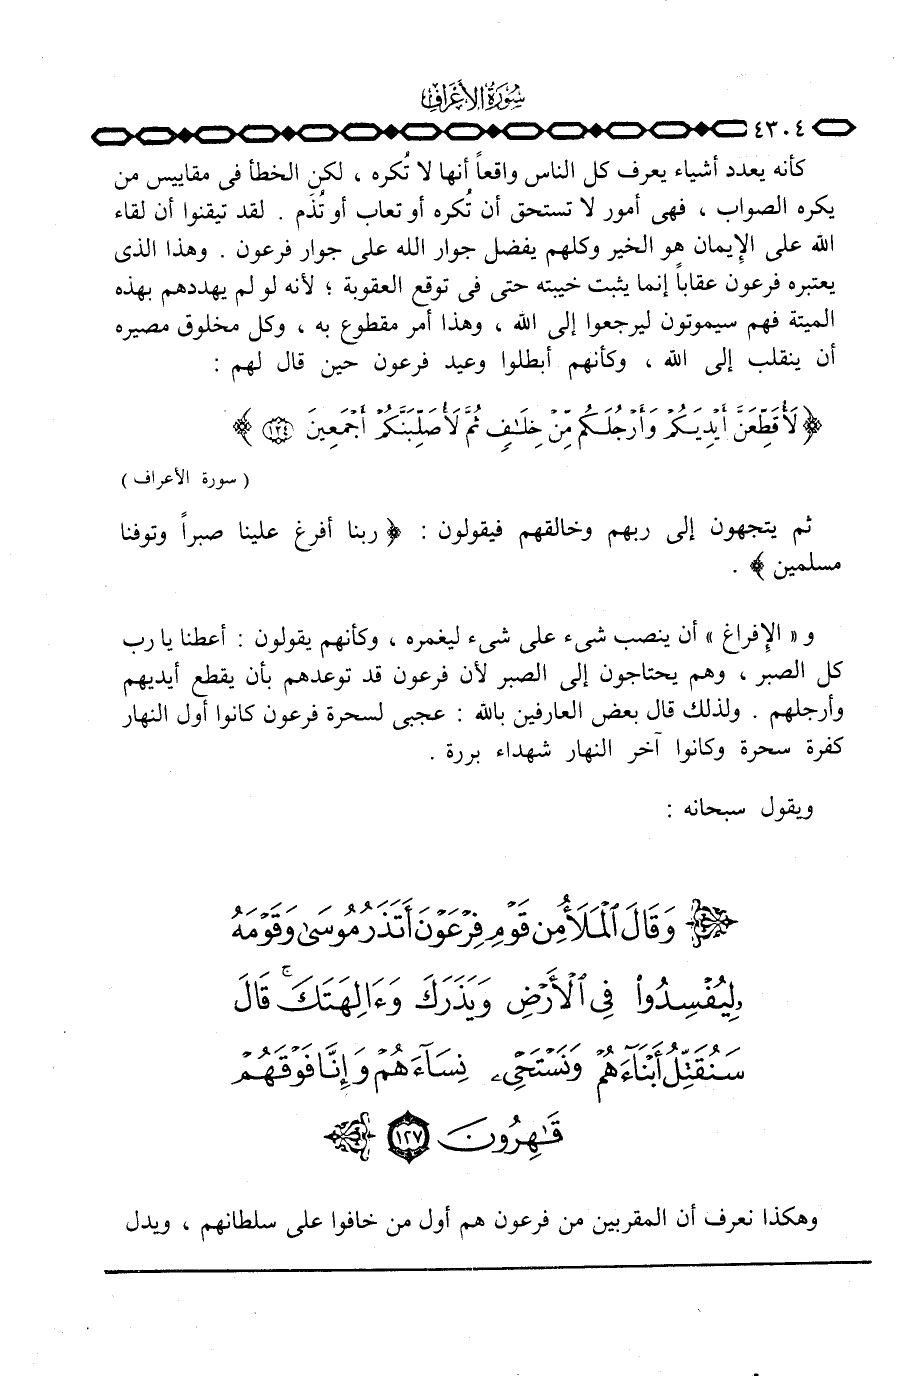 سُورَةُ الأَعْرَافِ
٤٣٠٤
كأنه يعدد أشياء يعرف كل الناس واقعاً أنها لا تُكره ، لكن الخطأ فى مقاييس من
يكره الصواب ، فهى أمور لا تستحق أن تُكره أو تعاب أو تُذم . لقد تيقنوا أن لقاء
الله على الإيمان هو الخير وكلهم يفضل جوار الله على جوار فرعون . وهذا الذى
يعتبره فرعون عقاباً إنما يثبت خيبته حتى فى توقع العقوبة ؛ لأنه لو لم يهددهم بهذه
الميتة فهم سيموتون ليرجعوا إلى الله ، وهذا أمر مقطوع به ، وكل مخلوق مصيره
أن ينقلب إلى الله ، وكأنهم أبطلوا وعيد فرعون حين قال لهم :
﴿ لَأُقَطِّعَنَّ أَيْدِيَكُمْ وَأَرْجُلَكُم مِّنْ خِلَٰفٍ ثُمَّ لَأُصَلِّبَنَّكُمْ أَجْمَعِينَ ١٢٤ ﴾
( سورة الأعراف )
ثم يتجهون إلى ربهم وخالقهم فيقولون : ﴿ ربنا أفرغ علينا صبراً وتوفنا
مسلمين ﴾ .
و « الإفراغ » أن ينصب شىء على شىء ليغمره ، وكأنهم يقولون : أعطنا يا رب
كل الصبر ، وهم يحتاجون إلى الصبر لأن فرعون قد توعدهم بأن يقطع أيديهم
وأرجلهم . ولذلك قال بعض العارفين بالله : عجبى لسحرة فرعون كانوا أول النهار
كفرة سحرة وكانوا آخر النهار شهداء بررة .
ويقول سبحانه :
وَقَالَ ٱلْمَلَأُ مِن قَوْمِ فِرْعَوْنَ أَتَذَرُ مُوسَىٰ وَقَوْمَهُ
لِيُفْسِدُوا۟ فِى ٱلْأَرْضِ وَيَذَرَكَ وَءَالِهَتَكَ ۚ قَالَ
سَنُقَتِّلُ أَبْنَآءَهُمْ وَنَسْتَحْىِۦ نِسَآءَهُمْ وَإِنَّا فَوْقَهُمْ
قَٰهِرُونَ ١٢٧
وهكذا نعرف أن المقربين من فرعون هم أول من خافوا على سلطانهم ، ويدل